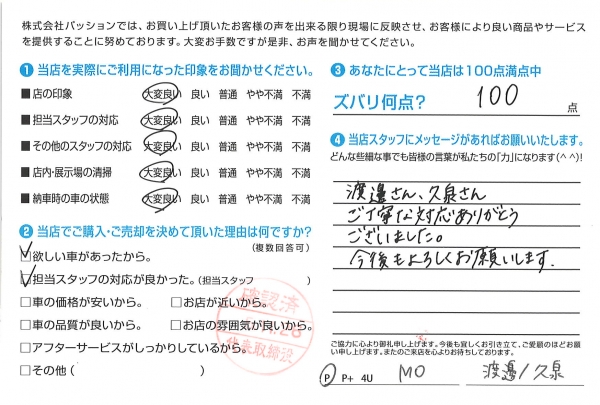 株式会社パッションでは、お買い上げ頂いたお客様の声を出来る限り現場に反映させ、お客様により良い商品やサービス
を提供することに努めております。大変お手数ですが是非、お声を聞かせてください。
1 当店を実際にご利用になった印象をお聞かせください。
■店の印象 大変良い 良い 普通 やや不満 不満
■担当スタッフの対応 大変良い 良い 普通 やや不満 不満
■その他のスタッフの対応 大変良い 良い 普通 やや不満 不満
■店内・展示場の清掃 大変良い 良い 普通 やや不満 不満
■納車時の車の状態 大変良い 良い 普通 やや不満 不満
2 当店でご購入・ご売却を決めて頂いた理由は何ですか?
(複数回答可)
☑欲しい車があったから。
☑担当スタッフの対応が良かった。(担当スタッフ )
□車の価格が安いから。 □お店が近いから。
□車の品質が良いから。 □お店の雰囲気が良いから。
□アフターサービスがしっかりしているから。
□その他( )
確認済
代表取締役
3 あなたにとって当店は100点満点中
ズバリ何点? 100 点
4 当店スタッフにメッセージがあればお願いいたします。
どんな些細な事でも皆様の言葉が私たちの「力」になります(^ ^)!
渡邊さん、久泉さん
ご丁寧な対応ありがとう
ございました。
今後もよろしくお願いします.
ご協力に心より御礼申し上げます。今後も宜しくお引き立て、ご愛顧のほどお願
い申し上げます。またのご来店を心よりお待ちしております。
P P+ 4U MO 渡邊/久泉